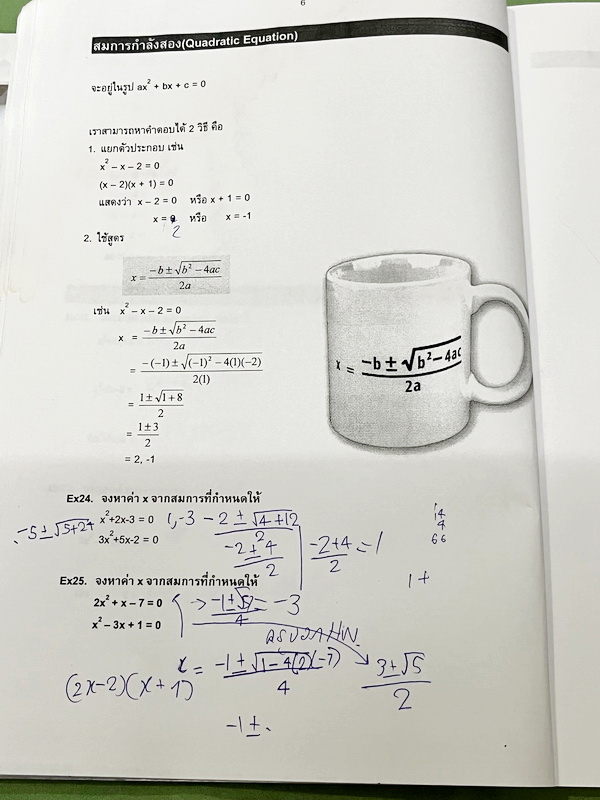 6
สมการกำลังสอง(Quadratic Equation)
จะอยู่ในรูป ax² + bx + c = 0
เราสามารถหาคำตอบได้ 2 วิธี คือ
1. แยกตัวประกอบ เช่น
x² – x – 2 = 0
(x – 2)(x + 1) = 0
แสดงว่า x – 2 = 0 หรือ x + 1 = 0
x = 2 หรือ x = -1
2. ใช้สูตร
x = (-b ± √(b² – 4ac)) / 2a
เช่น x² – x – 2 = 0
x = (-b ± √(b² – 4ac)) / 2a
= (-(-1) ± √((-1)² – 4(1)(-2))) / 2(1)
= (1 ± √(1+8)) / 2
= (1 ± 3) / 2
= 2, -1
x = (-b ± √(b² – 4ac)) / 2a
Ex24. จงหาค่า x จากสมการที่กำหนดให้
x²+2x-3 = 0 1,-3 (-2 ± √(4+12)) / 2
-5 ± √(5+24)
3x²+5x-2 = 0 (-2 ± 4) / 2 (-2+4) / 2 = 1
14
4
66
1 +
Ex25. จงหาค่า x จากสมการที่กำหนดให้
2x² + x – 7 = 0 → (-1 ± √57) / 4 = -3
x² – 3x + 1 = 0
x = (-1 ± √(1-4(2)(-7))) / 4
(3 ± √5) / 2
(2x-2)(x+1)
-1 ±